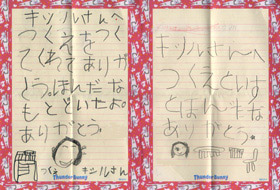 キッルさんへ
つくえをつ
くてくれてありが
とう。ほんだな
もとといたよ。
ありがとう。
つくえ
キッルさん
ThunderBunny
キッルさんへ
つくえといす
とほんだな
ありがとう。
ThunderBunny